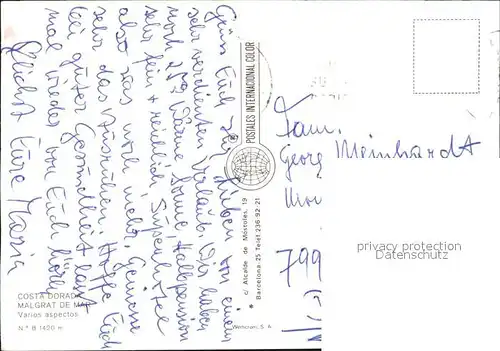 Grüss Euch Ihr Lieben von einem
sehr verdienten Urlaub. Wir haben
noch 25° Wärme Sonne, Halbpension
sehr fein + reichlich, Superhotel
also was noch mehr. Geniesse
sehr das Ausruhen. Hoffe Euch
bei guter Gesundheit lasst
mal wieder von Euch hören
Herzlichst Eure Maria
COSTA DORADA
MALGRAT DE MAR
Varios aspectos
N.º B 1420 m
POSTALES INTERNACIONAL COLOR
c/ Alcalde de Móstoles, 19
Barcelona-25 Telef. 236-92-21
Fam.
Georg Meinhardt
799
privacy protection
Datenschutz